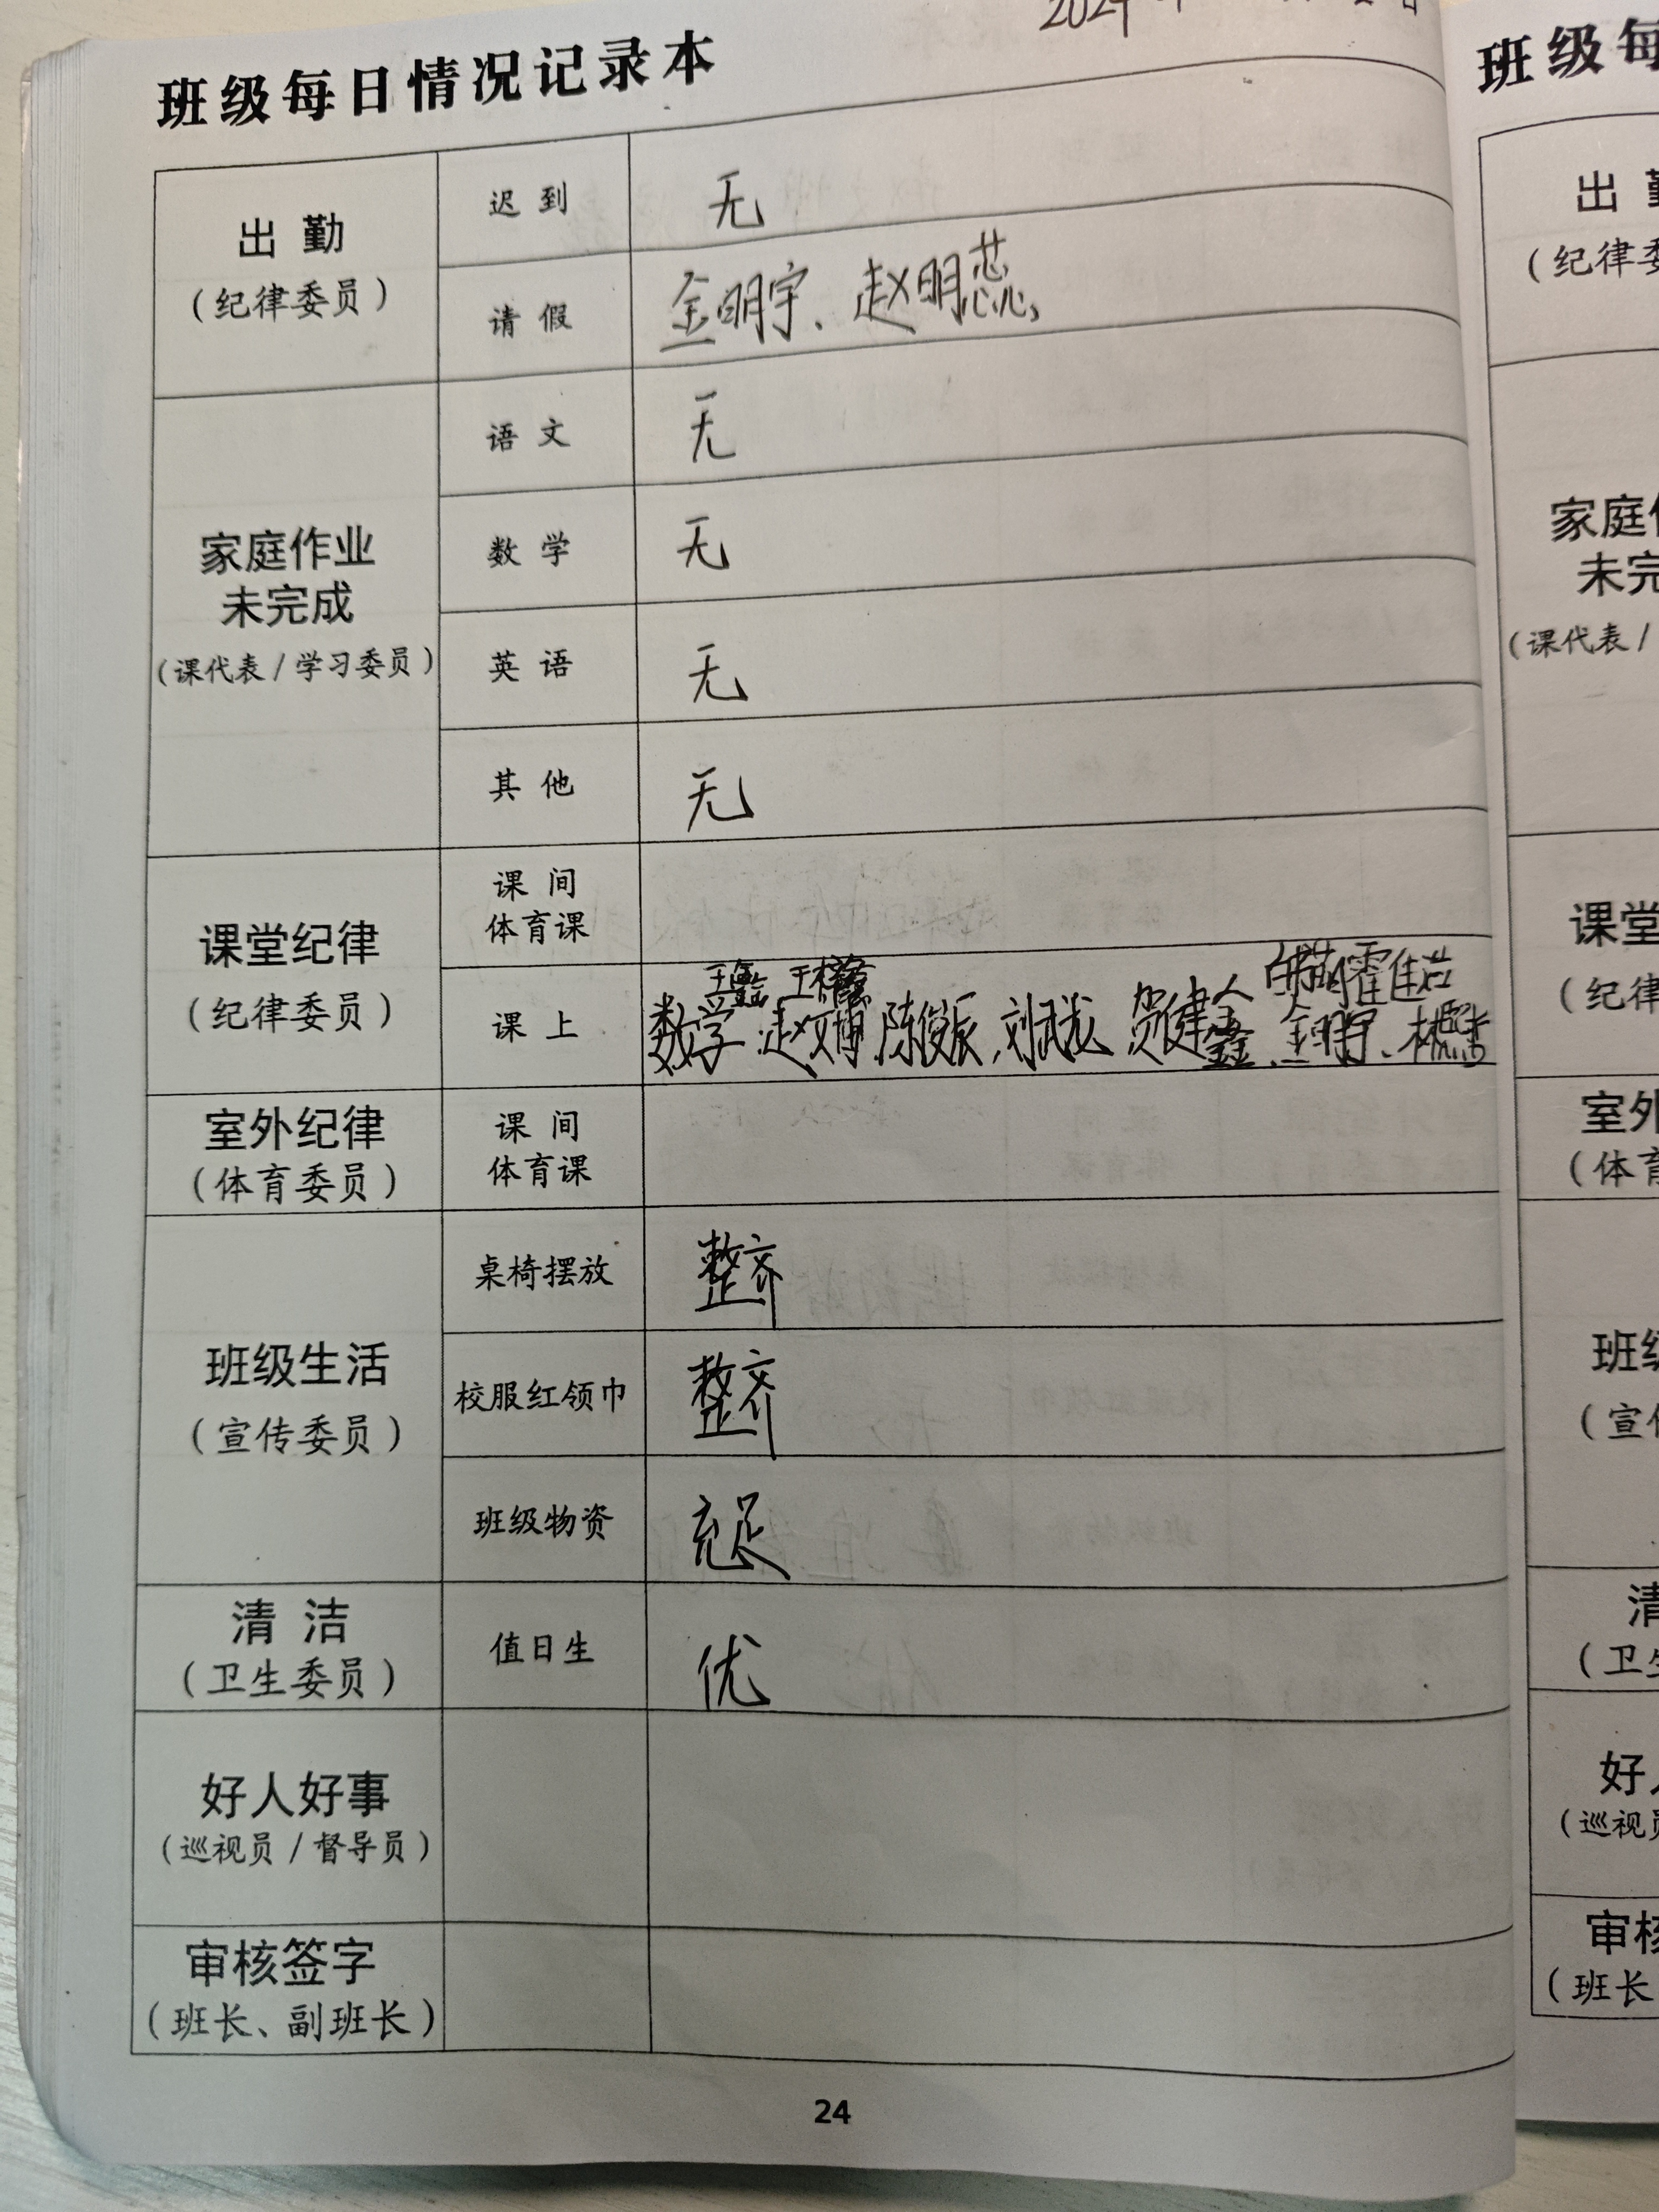 班级每日情况记录本
出勤
（纪律委员）
迟到
无
请假
金明宇、赵明蕊、
家庭作业
未完成
（课代表/学习委员）
语文
无
数学
无
英语
无
其他
无
课堂纪律
（纪律委员）
课间
体育课
课上
数学:赵文博.陈俊辰.刘武龙 贺健鑫、金明宇、林熙
室外纪律
（体育委员）
课间
体育课
班级生活
（宣传委员）
桌椅摆放
整齐
校服红领巾
整齐
班级物资
充足
清洁
（卫生委员）
值日生
优
好人好事
（巡视员/督导员）
审核签字
（班长、副班长）
24
班级每
出
（纪律
家庭
未完
（课代表/
课堂
（纪律
室外
（体育
班级
（宣
清
（卫
好
（巡视
审核
（班长